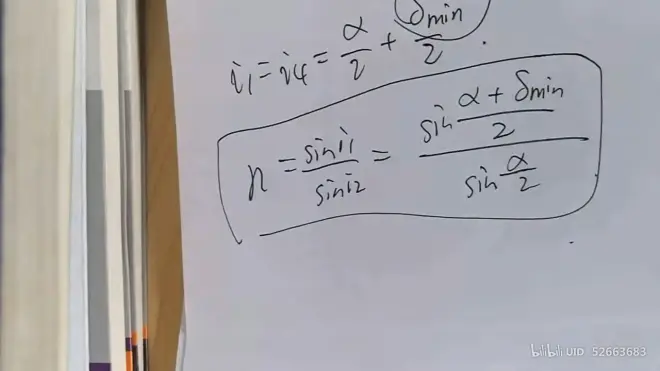 i₁ = i₄ = α/2 + δmin/2 .
n = sin i₁ / sin i₂ = sin (α + δmin)/2 / sin α/2
bilibili UID 52663683